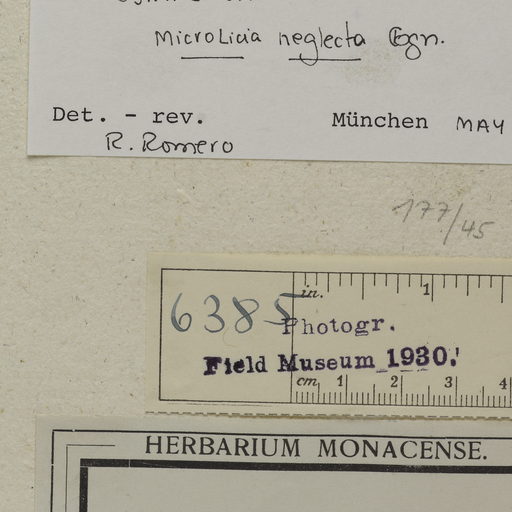 Microlicia neglecta Cogn.
Det. - rev. München MAY
R. Romero
177/45
in. 1
6385
Photogr.
Field Museum 1930.
cm 1 2 3 4
HERBARIUM MONACENSE.